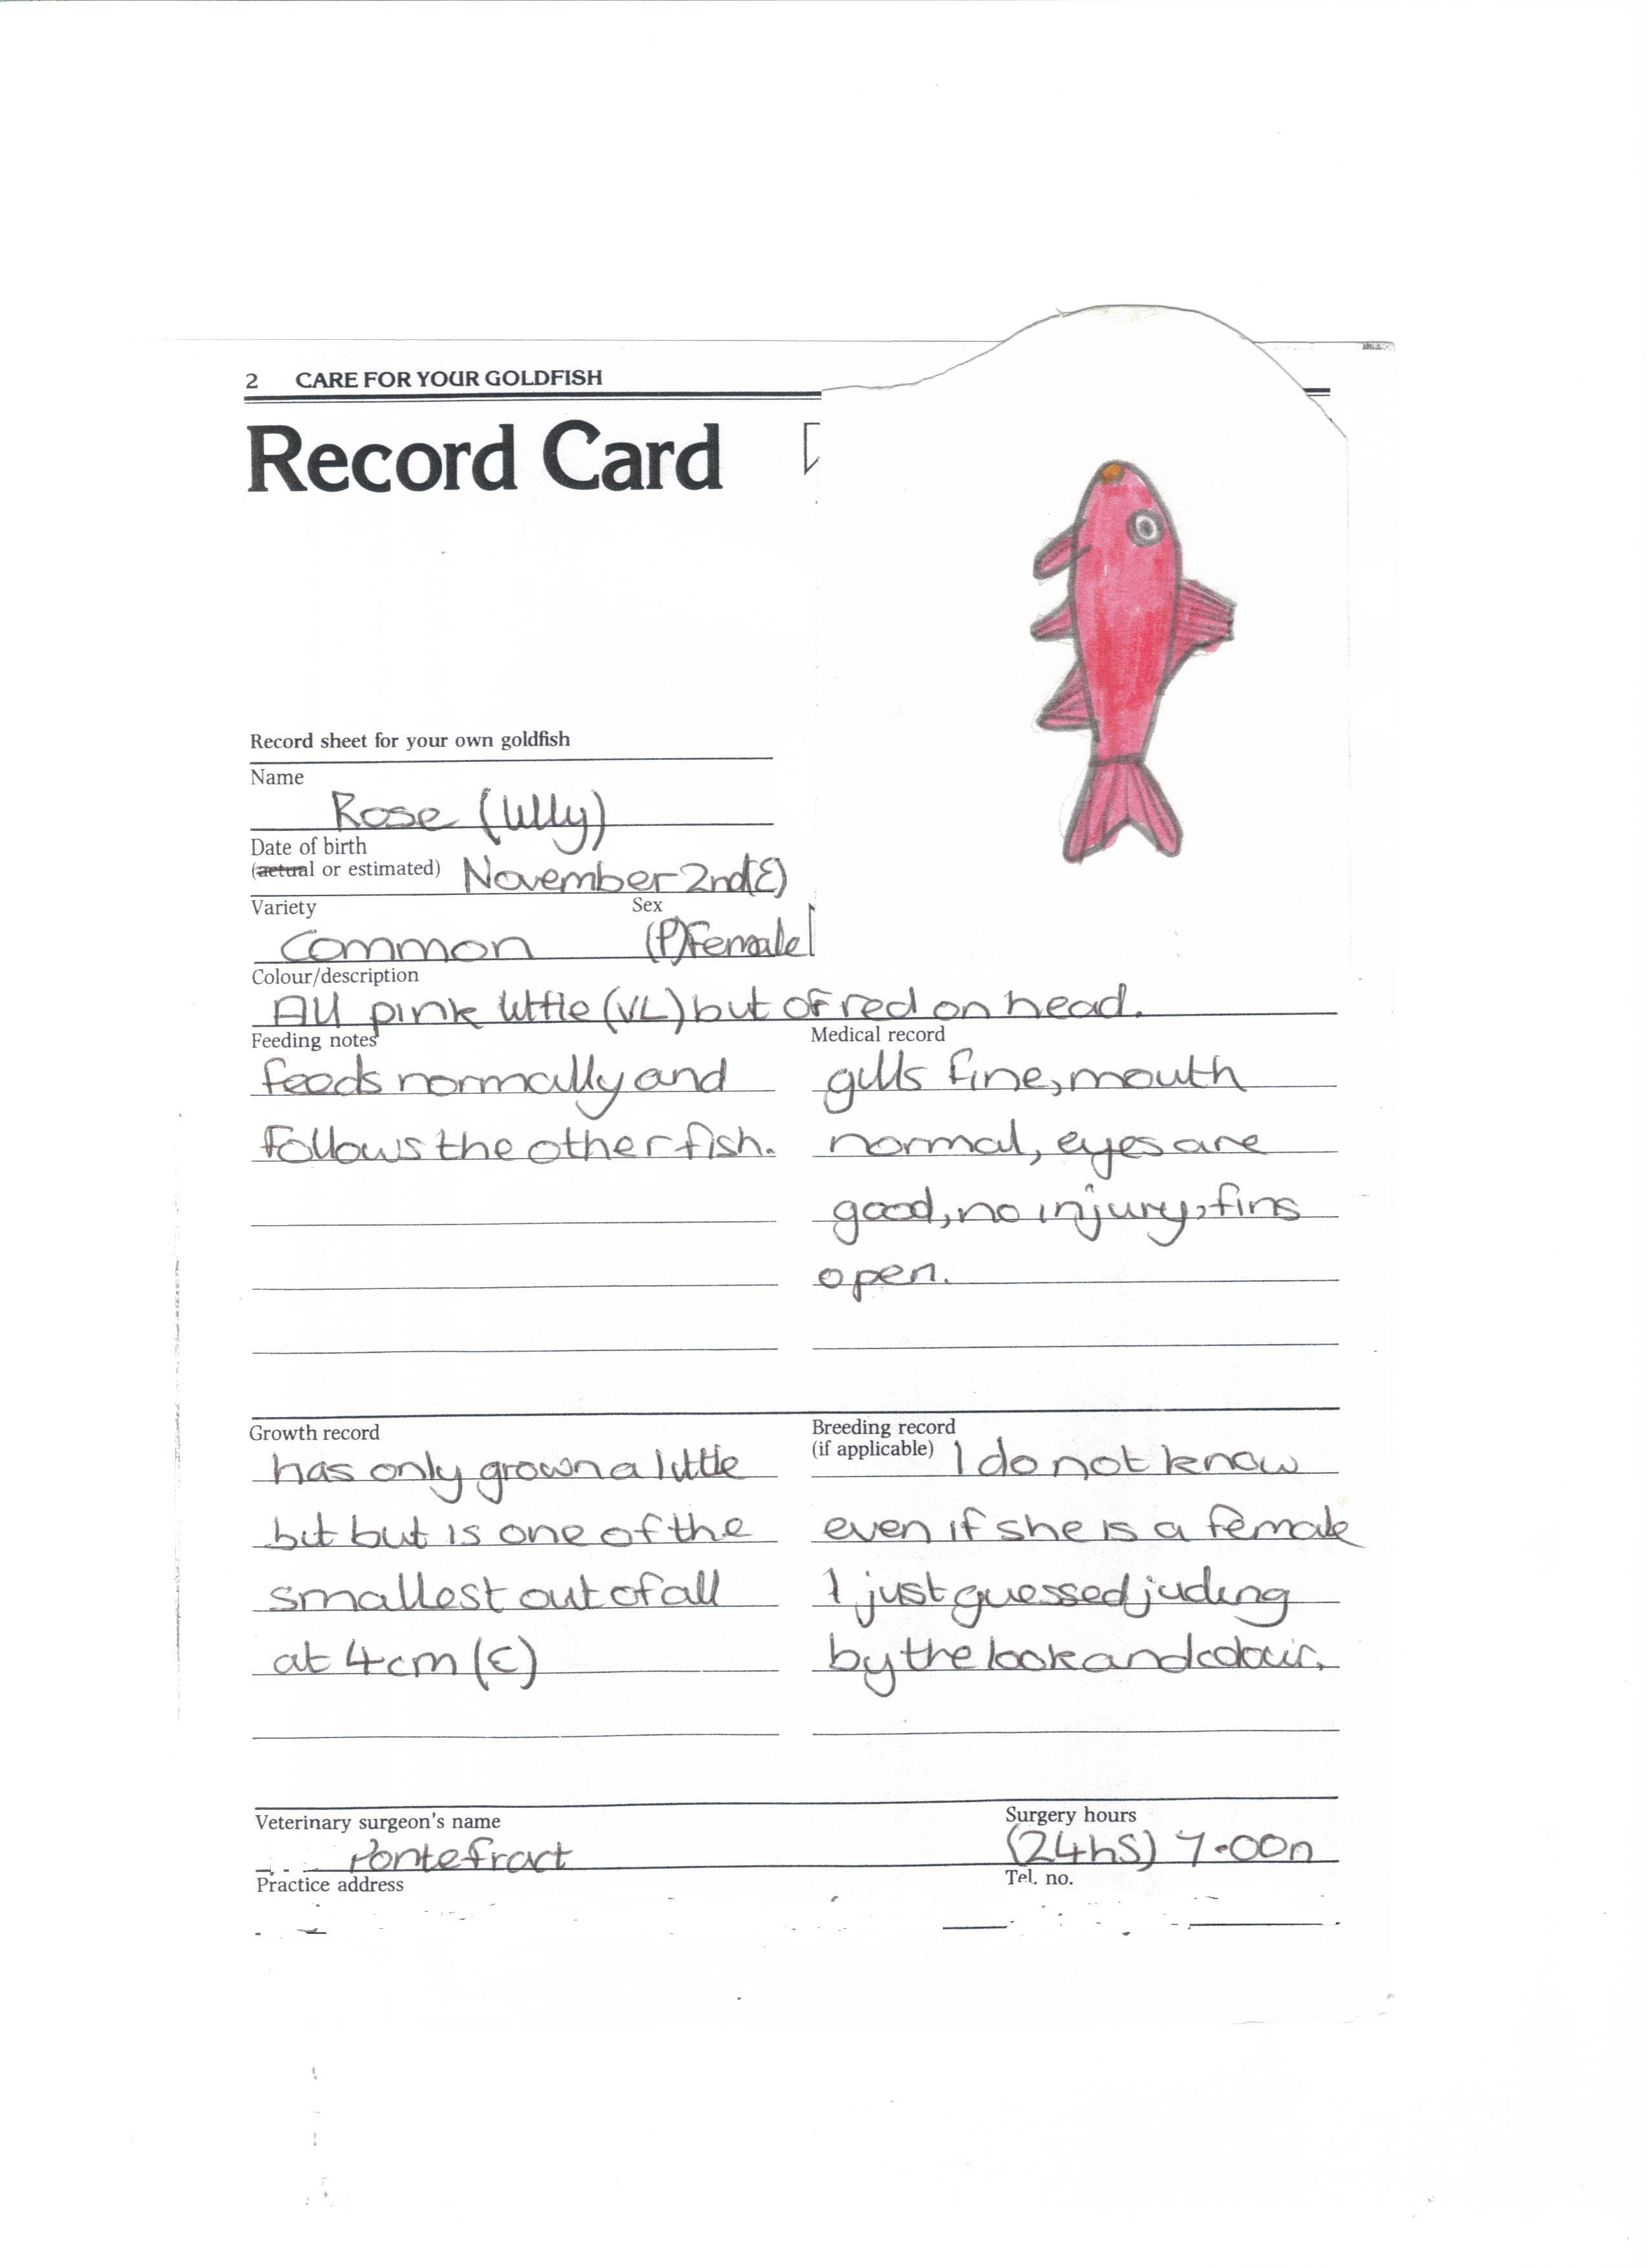 2 CARE FOR YOUR GOLDFISH
Record Card
Record sheet for your own goldfish
Name
Rose (lilly)
Date of birth
(actual or estimated) November 2nd(E)
Variety Sex
Common (P)Female
Colour/description
All pink little (VL) but of red on head.
Feeding notes
feeds normally and
follows the other fish.
Medical record
gills fine, mouth
normal, eyes are
good, no injury, fins
open.
Growth record
has only grown a little
bit but is one of the
smallest out of all
at 4cm (E)
Breeding record
(if applicable) I do not know
even if she is a female
I just guessed juding
by the look and colour.
Veterinary surgeon's name
Pontefract
Surgery hours
(24hs) 7.00n
Practice address
Tel. no.